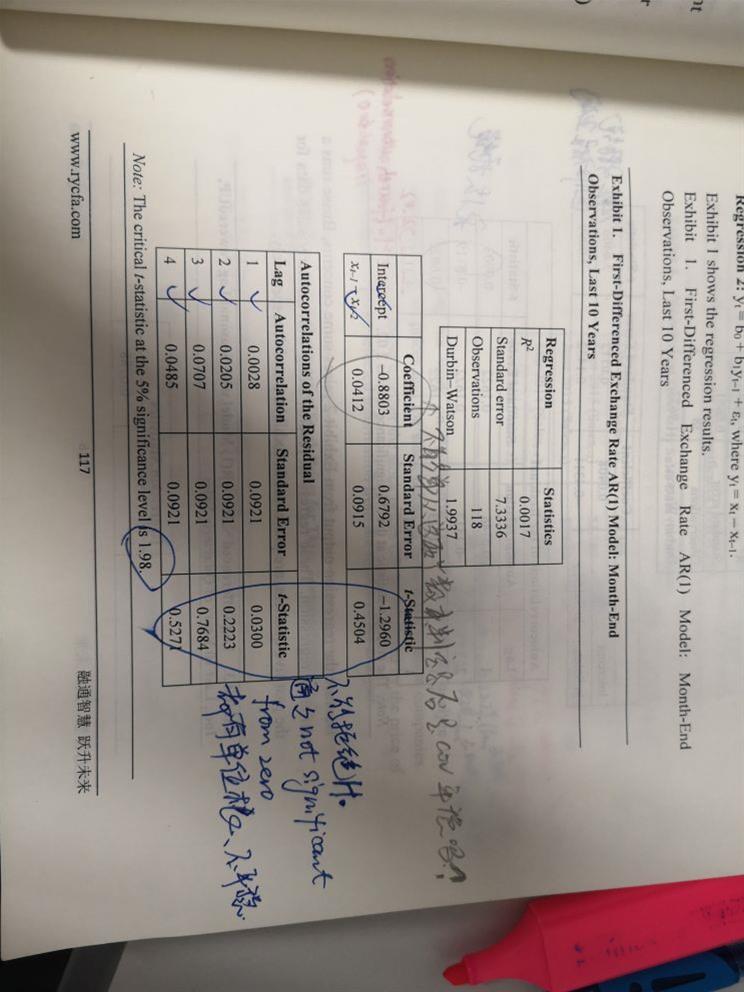 Regression 2: yt = b0 + b1yt−1 + εt, where yt = xt − xt−1.
Exhibit 1 shows the regression results.
Exhibit 1. First-Differenced Exchange Rate AR(1) Model: Month-End
Observations, Last 10 Years
Exhibit 1. First-Differenced Exchange Rate AR(1) Model: Month-End
Observations, Last 10 Years
Regression Statistics
R² 0.0017
Standard error 7.3336
Observations 118
Durbin–Watson 1.9937
Coefficient Standard Error t-Statistic
Intercept −0.8803 0.6792 −1.2960
xt−1 − xt−2 0.0412 0.0915 0.4504
不能拒绝H0
not significant
from zero
都有单位根、不平稳
Autocorrelations of the Residual
Lag Autocorrelation Standard Error t-Statistic
1 0.0028 0.0921 0.0300
2 0.0205 0.0921 0.2223
3 0.0707 0.0921 0.7684
4 0.0485 0.0921 0.5271
Note: The critical t-statistic at the 5% significance level is 1.98.
117
www.rycfa.com
融通智慧 跃升未来